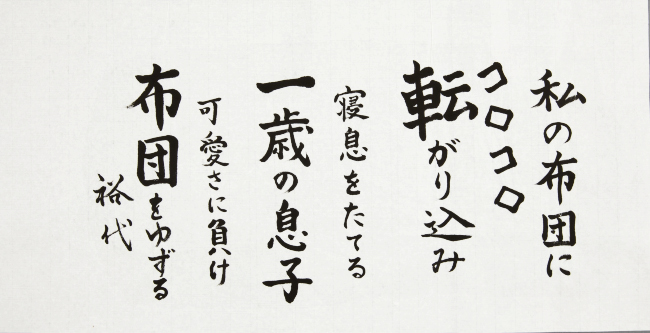 私の布団に
コロコロ
転がり込み
寝息をたてる
一歳の息子
可愛さに負け
布団をゆずる
裕代